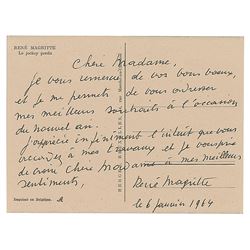 RENÉ MAGRITTE
Le jockey perdu
Chère Madame,
Je vous remercie de vos bons voeux,
et je me permets de vous adresser
mes meilleurs souhaits à l'occasion
du nouvel an.
J'apprécie infiniment l'intérêt que vous
accordez à mes travaux et je vous prie
de croire Chère Madame à mes meilleurs
sentiments,
René Magritte
le 6 janvier 1964
Imprimé en Belgique.